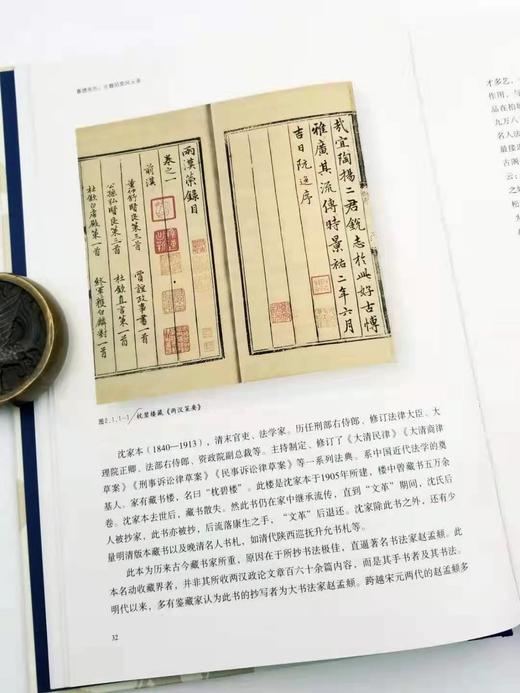 哉宜陶楊二君銳志於此好古博
雅廣其流傳時景祐二年六月
吉日阮逸序
兩漢策錄目
卷之一
前漢
董仲舒賢良策三首
賈誼政事書一首
公孫弘賢良策一首
杜欽直言策一首
杜欽白虎殿策一首
終軍獲白麟對一首
图2.1.1-1 枕碧楼藏《两汉策要》
沈家本（1840—1913），清末官吏、法学家。历任刑部右侍郎、修订法律大臣、大
理院正卿、法部右侍郎、资政院副总裁等。主持制定、修订了《大清民律》《大清商律
草案》《刑事诉讼律草案》《民事诉讼律草案》等一系列法典。系中国近代法学的奠
基人。家有藏书楼，名曰“枕碧楼”。此楼是沈家本于1905年所建，楼中曾藏书五万余
卷。沈家本去世后，藏书散失。然此书仍在家中继承流传，直到“文革”期间，沈氏后
人被抄家，此书亦被抄，后流落康生之手，“文革”后退还。沈家除此书之外，还有少
量明清版本藏书以及晚清名人书札，如清代陕西巡抚升允书札等。
此本为历来古今藏书家所重，原因在于所抄书法极佳，直逼著名书法家赵孟頫。此
本名动收藏界者，并非其所收两汉政论文章百六十余篇内容，而是其手书者及其书法。
明代以来，多有鉴藏家认为此书的抄写者为大书法家赵孟頫。跨越宋元两代的赵孟頫多
32
才多艺，
作用，与
品在柏
九万八
名人法
最后
古阁
云：
之
松
于